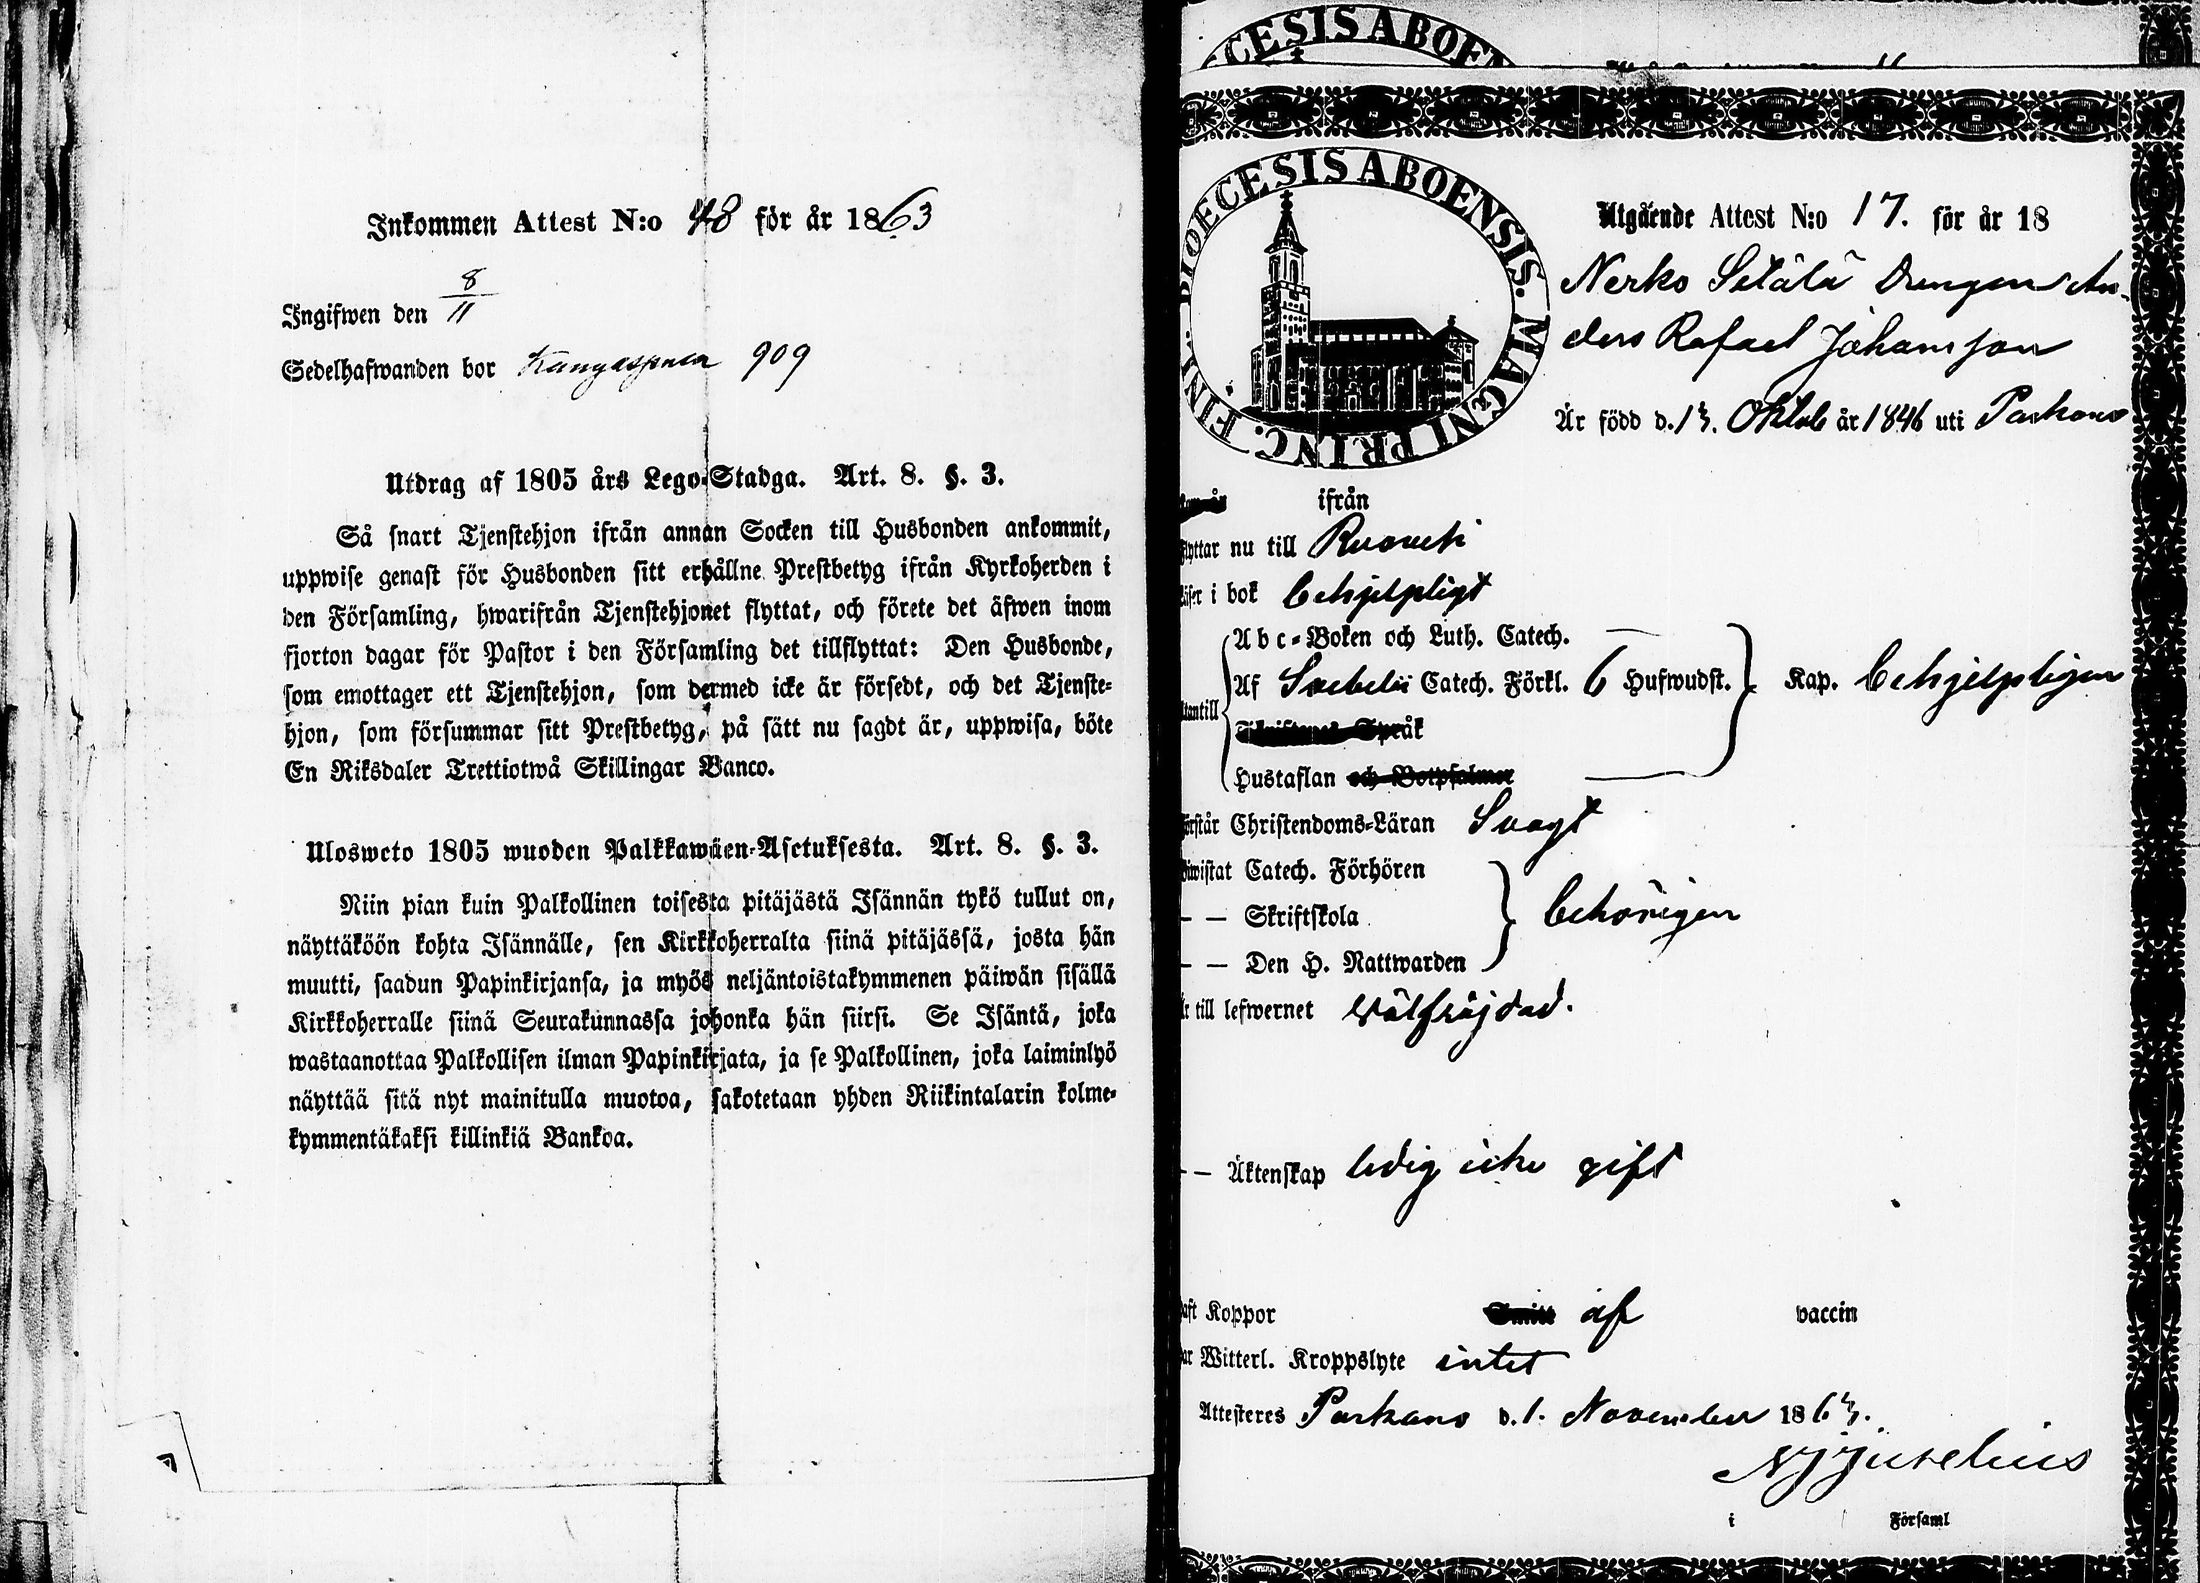 Inkommen Attest N:o 48 för år 1863
Ingifwen den 8/11
Sedelhafwanden bor 909
Utdrag af 1805 års Lego-Stadga. Art. 8. §. 3.
Så snart Tjenstehjon ifrån annan Socken till Husbonden ankommit,
uppwise genast för Husbonden sitt erhållne Prestbetyg ifrån Kyrkoherden i
den Församling, hwarifrån Tjenstehjonet flyttat, och förete det äfwen inom
fjorton dagar för Pastor i den Församling det tillflyttat: Den Husbonde,
som emottager ett Tjenstehjon, som dermed icke är försedt, och det Tjenste-
hjon, som försummar sitt Prestbetyg, på sätt nu sagdt är, uppwisa, böte
En Riksdaler Trettiotwå Skillingar Banco.
Ulosweto 1805 wuoden Palkkawäen-Asetuksesta. Art. 8. §. 3.
Niin pian kuin Palkollinen toisesta pitäjästä Isännän tykö tullut on,
näyttäköön kohta Isännälle, sen Kirkkoherralta siinä pitäjässä, josta hän
muutti, saadun Papinkirjansa, ja myös neljäntoistakymmenen päiwän sisällä
Kirkkoherralle siinä Seurakunnassa johonka hän siirsi. Se Isäntä, joka
wastaanottaa Palkollisen ilman Papinkirjata, ja se Palkollinen, joka laiminlyö
näyttää sitä nyt mainitulla muotoa, sakotetaan yhden Riikintalarin kolme-
kymmentäkaksi killinkiä Bankoa.
CESIS ABOEN
DIOECESIS ABOENSIS. MAGNI PRINC. FINL.
Utgående Attest N:o 17. för år 18
Nerko Setälä Drengen An-
ders Rafael Johansson
Är född d. 13. Oktob år 1846 uti Parkano
ifrån
flyttar nu till Ruovesi
läser i bok behjelpligt
Abc-Boken och Luth. Catech. —
utantill Af Svebelii Catech. Förkl. 6 Hufwudst. Kap. behjelpligen
Skriftenes Språk
Hustaflan och Botpsalmer —
förstår Christendoms-Läran Svagt
biwistat Catech. Förhören
— — Skriftskola behörigen
— — Den H. Nattwarden
är till lefwernet välfräjdad.
— — Äktenskap ledig icke gift
haft Koppor Smitt af vaccin
har Witterl. Kroppslyte intet
Attesteres Parkano d. 1. November 1863.
Juselius
i Församl